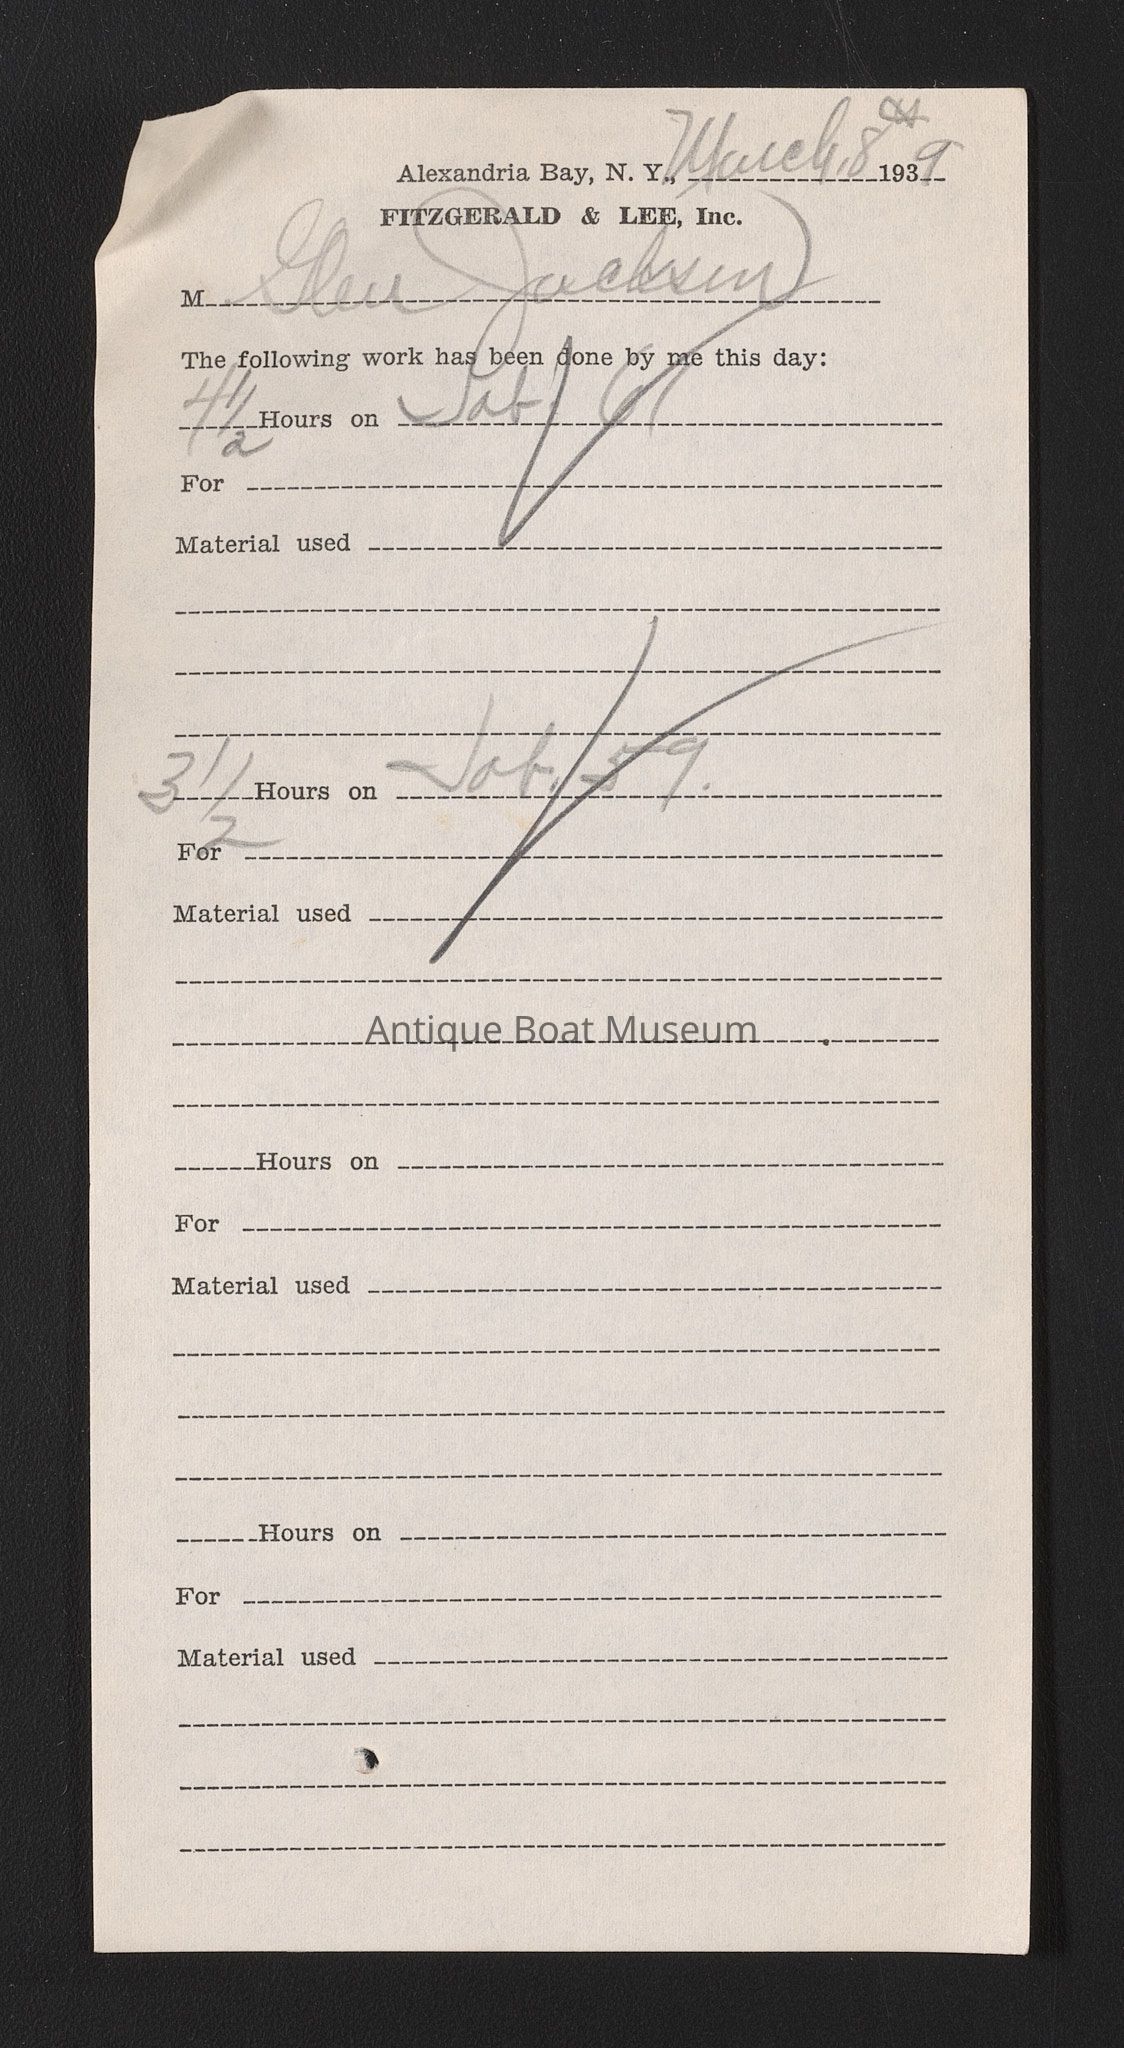 Alexandria Bay, N. Y., March 8th 1939
FITZGERALD & LEE, Inc.
M Glen Jackson
The following work has been done by me this day:
4 1/2 Hours on Job. 61
For
Material used
3 1/2 Hours on Job. 59.
For
Material used
Antique Boat Museum
Hours on
For
Material used
Hours on
For
Material used